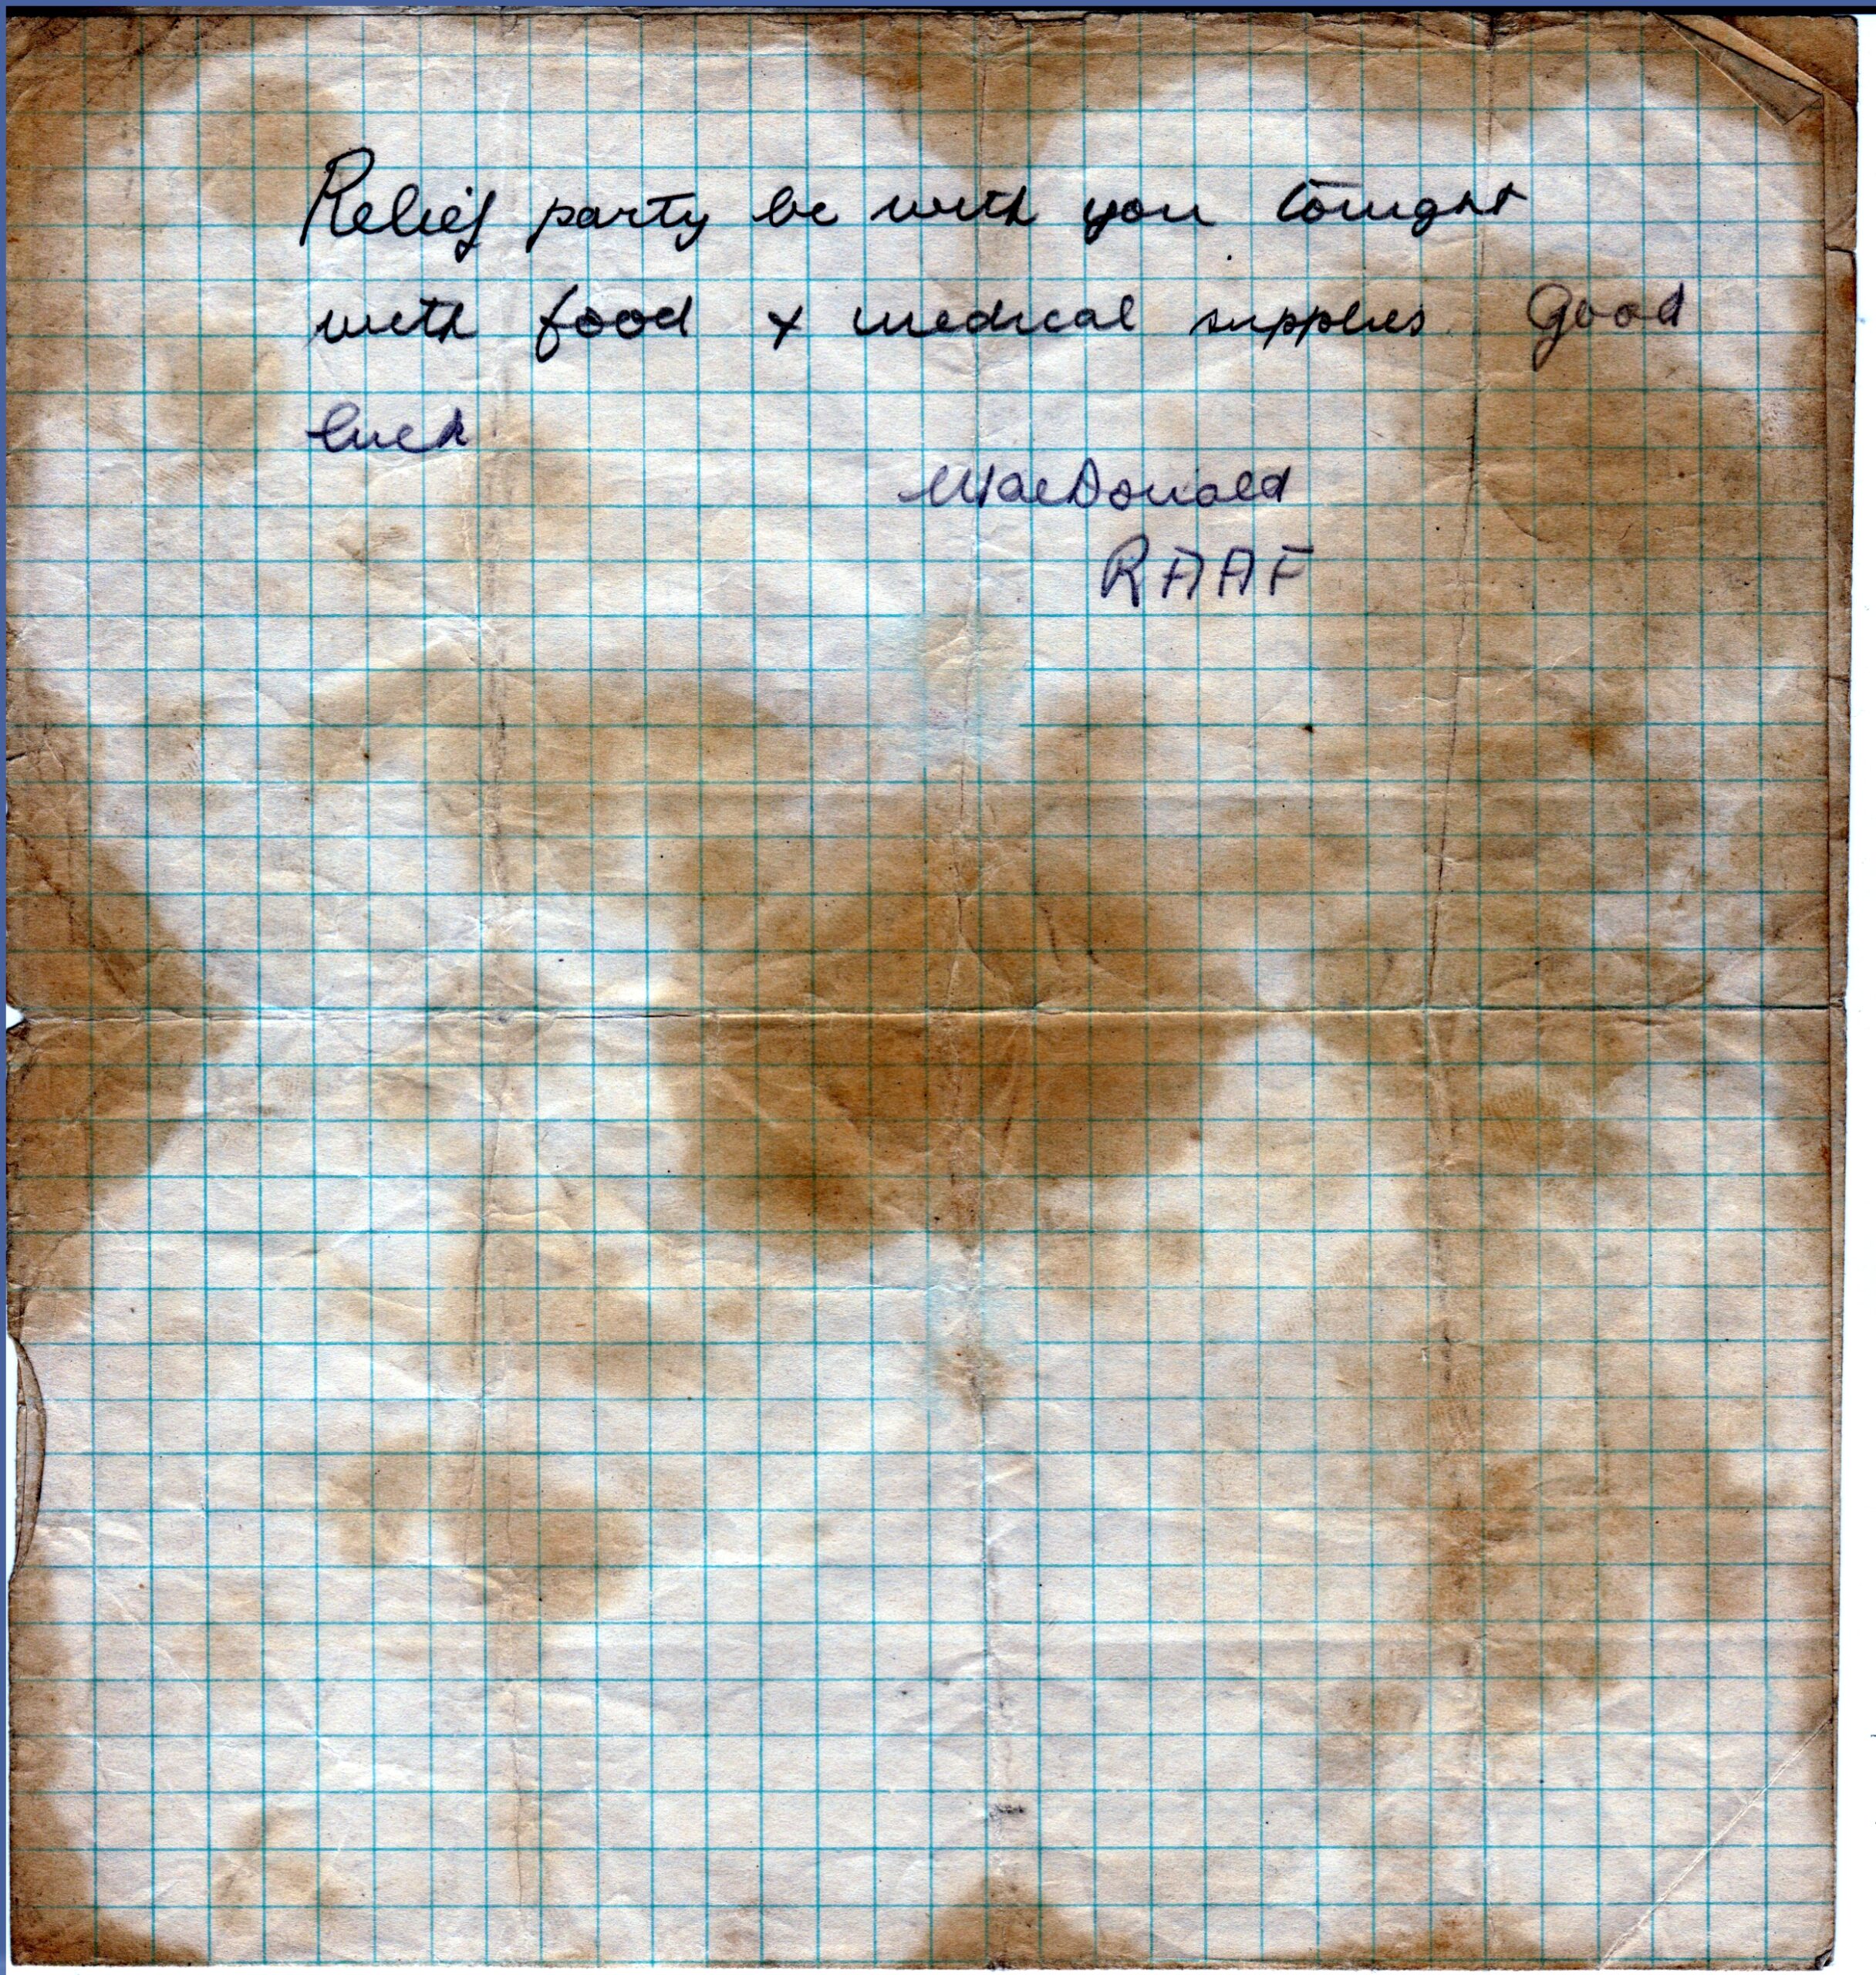 Relief party be with you tonight
with food + medical supplies. Good
luck
MacDonald
RAAF